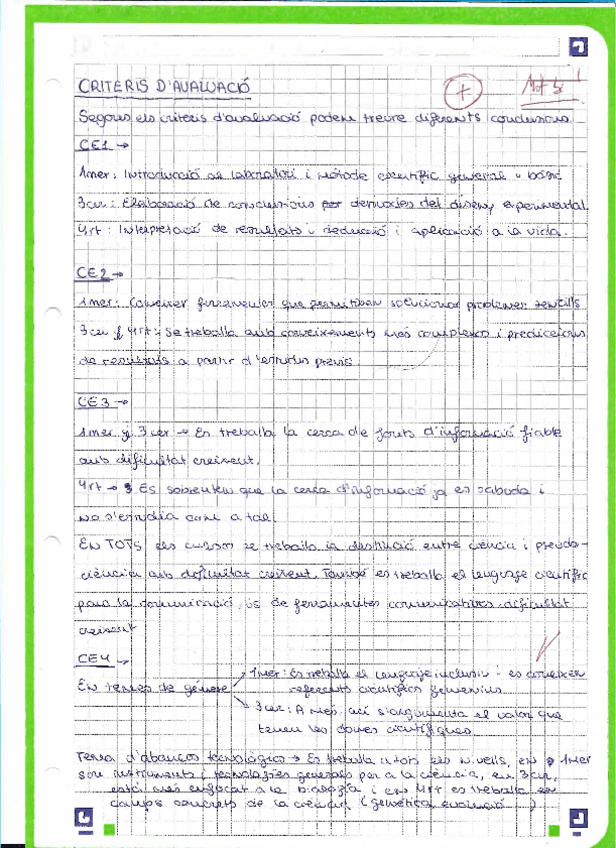 CRITERIS D'AVALUACIÓ
Segons els criteris d'avaluació podem treure diferents conclusions
CE1 →
1mer: Introducció al laboratori i mètode científic general i bàsic
3cer: Elaboració de conclusions per derivades del disseny experimental.
4rt: Interpretació de resultats i deducció i aplicació a la vida.
CE2 →
1mer: Coneixer ferramentes que permitisan solucionar problemes sencills
3cer y 4rt: Se treballa amb coneixements més complexos i prediccions
de resultats a partir d'estudis previs.
CE3 →
1mer y 3cer → Es treballa la cerca de fonts d'informació fiable
amb dificultat creixent.
4rt → Es sobrenten que la cerca d'informació ja es sabuda i
no s'estudia com a tal.
EN TOTS els cursos se treballa la distinció entre ciència i pseudo-
ciència amb dificultat creixent. També es treballa el lenguaje científic
para la comunicació, ús de ferramentes comunicatives dificultat
creixent
CE4 →
En temes de género
1mer: Es treballa el lenguaje inclusiu i es coneixen
referents científics femenins.
3cer: A més, ací s'argumenta el valor que
tenen les dones científiques.
Tema d'abanços tecnològics → Es treballa a tots els nivells, en 1mer
son instruments i tecnologies generals per a la ciència, en 3cer,
està més enfocat a la biologia, i en 4rt es treballa en
camps concrets de la ciència (genètica, evolució )